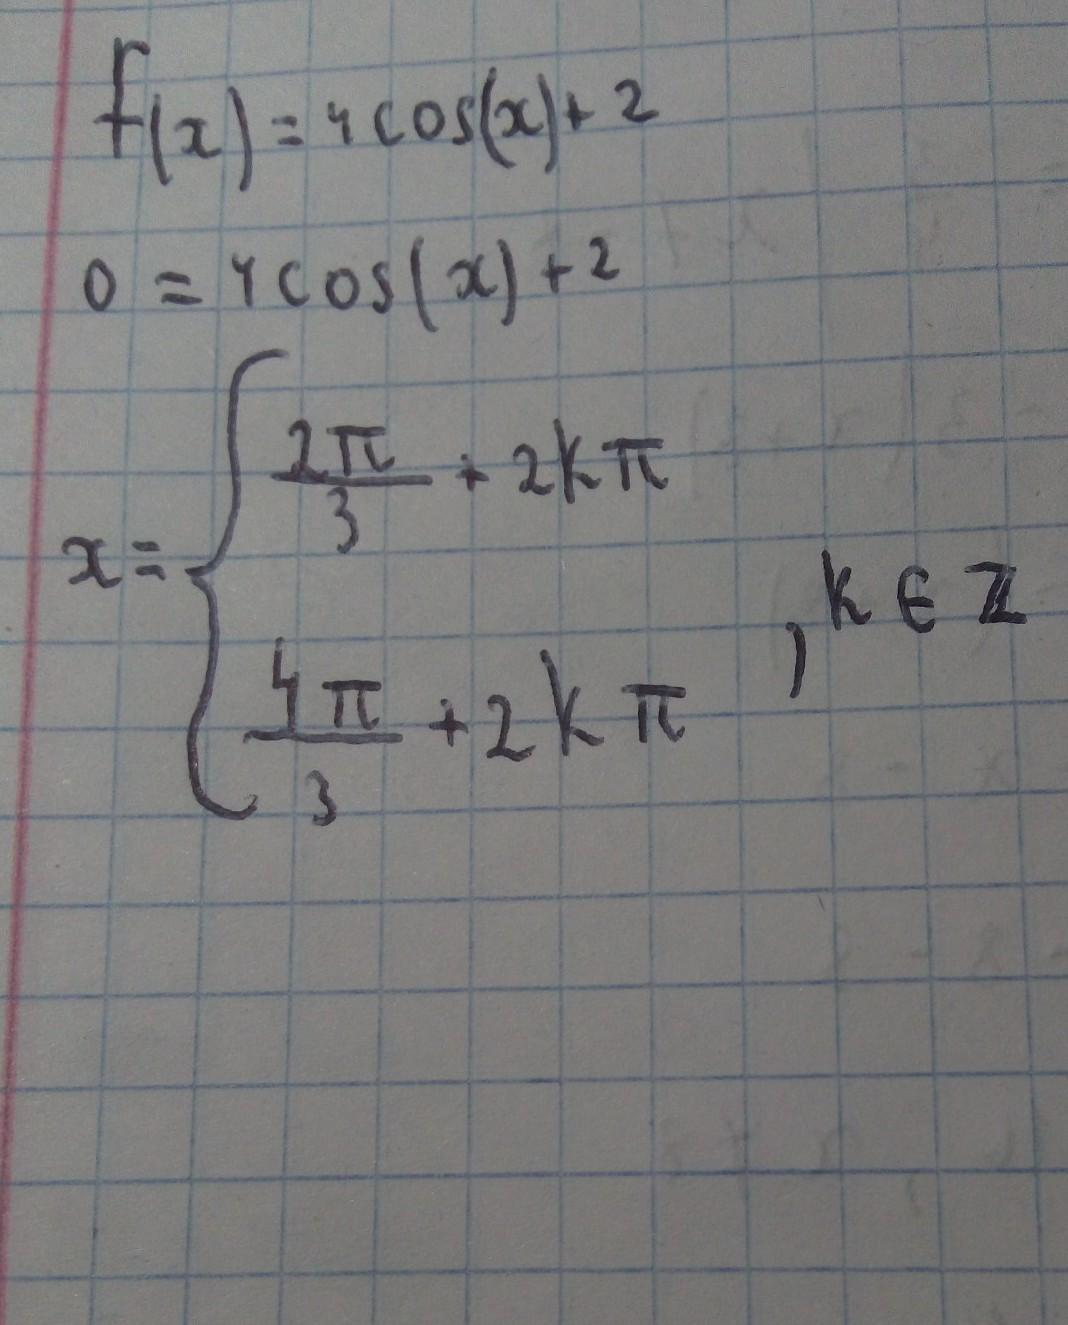 f(x) = 4cos(x) + 2
0 = 4cos(x) + 2
x = { 2π/3 + 2kπ
4π/3 + 2kπ , k ∈ ℤ